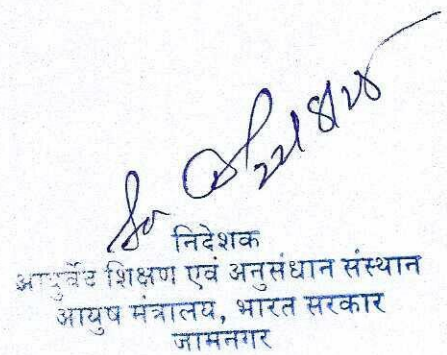 22/8/25
निदेशक
आयुर्वेद शिक्षण एवं अनुसंधान संस्थान
आयुष मंत्रालय, भारत सरकार
जामनगर